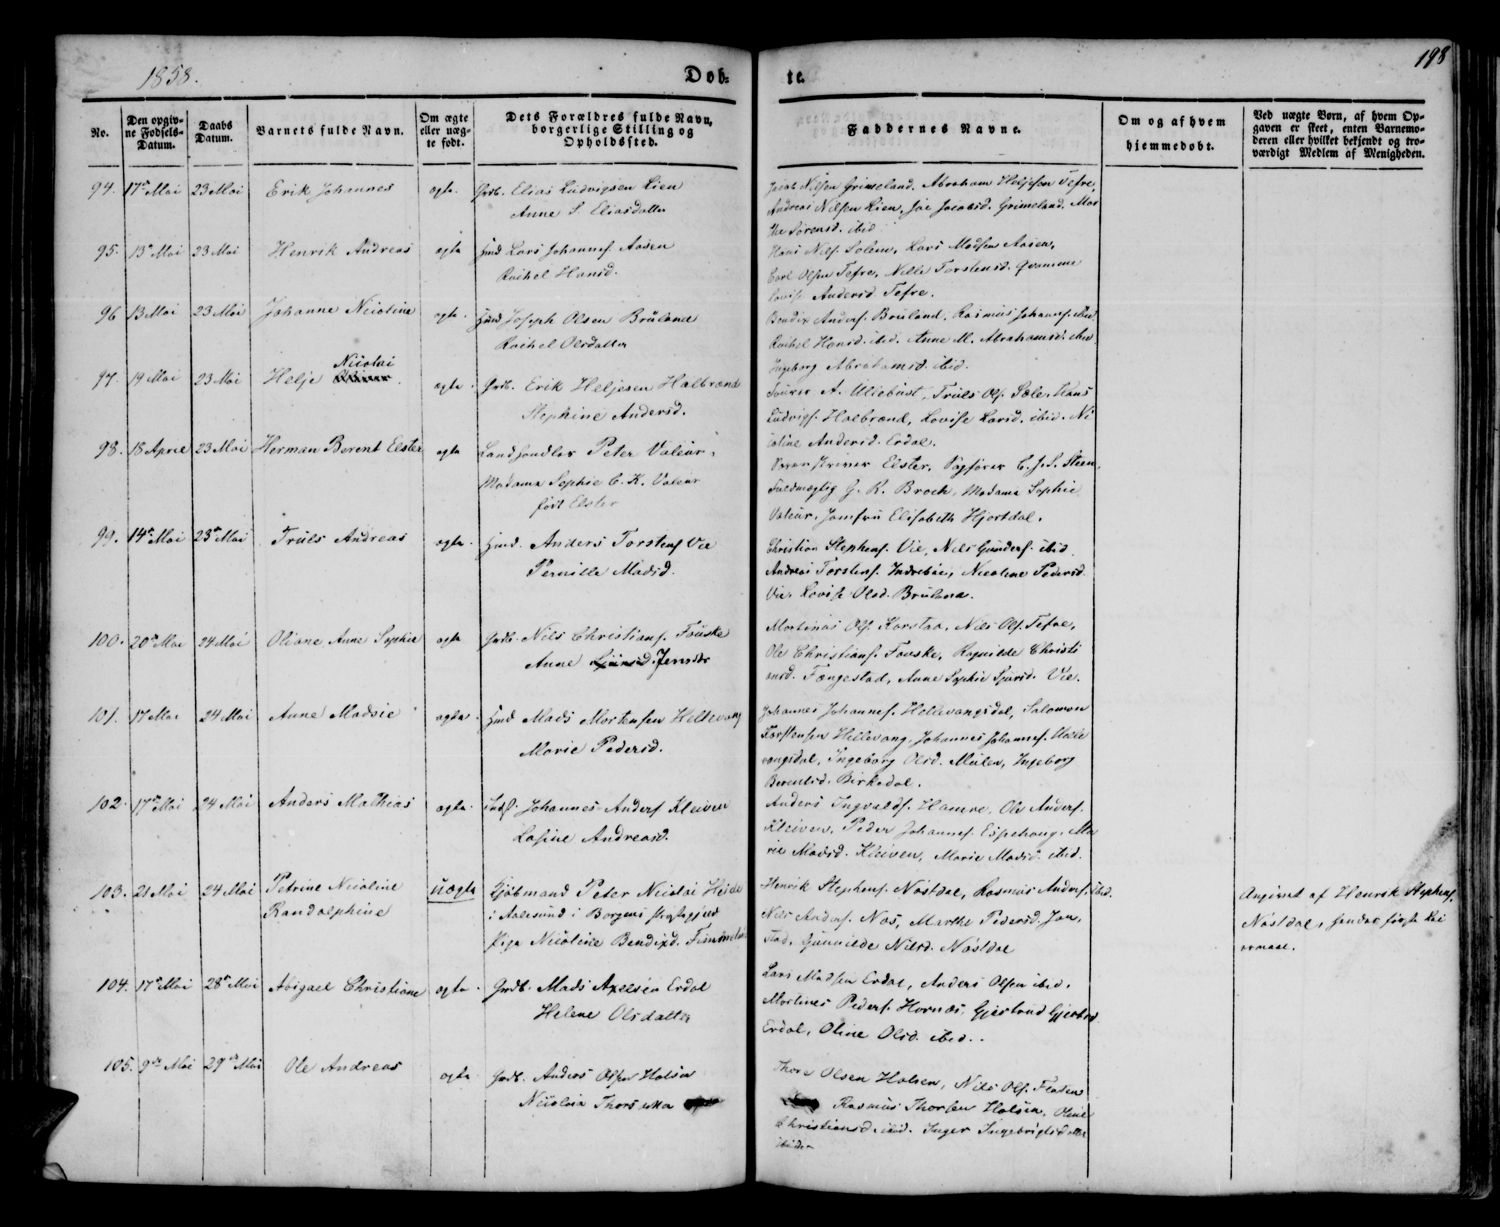 1858.
Døb-
te.
198
No.
Den opgiv-
ne Fødsels-
Datum.
Daabs
Datum.
Barnets fulde Navn.
Om ægte
eller uæg-
te født.
Dets Forældres fulde Navn,
borgerlige Stilling og
Opholdssted.
Faddernes Navne.
Om og af hvem
hjemmedøbt.
Ved uægte Børn, af hvem Op-
gaven er skeet, enten Barnemo-
deren eller hvilket bekjendt og tro-
værdigt Medlem af Menigheden.
94. 17de Mai 23 Mai Erik Johannes ægte. Grdb. Elias Ludvigsen Lien
Anne S. Eliasdatter
Jacob Nilsen Grimeland, Abraham Heljesen Tefre,
Andreas Nilsen Lien, Jacobsd. Grimeland, Mar
the Sørensd. ibid
95. 13de Mai 23 Mai Henrik Andreas ægte Hmd Lars Johannes. Aasen
Rachel Hansd.
Hans Nils. Solem, Lars Madsen Aasen,
Carl Olsen Tefre, Nille Torstensd. Qvamme
Lovise Andersd Tefre.
96 13 Mai 23 Mai Johanne Nicoline ægte. Hmd Joseph Olsen Bruland
Rachel Olsdatter
Bendix Anders. Bruland, Rasmus Johannes. ibid
Rachel Hansd. ibid. Anne M. Abrahamsd. ibid
Ingeborg Abrahamsd. ibid.
97. 19 Mai 23 Mai Helje Nicolai ægte. Grdb. Erik Heljesen Halbrænd
Stephine Andersd.
A. Ullebust, Truls Ols. Sæle, Hans
Ludvigs. Halbrænd, Lovise Larsd. ibid. Ni
coline Andersd. Erdal.
98. 18 April 23 Mai Herman Berent Elster ægte Landhandler Peter Valeur,
Madame Sophie C. K. Valeur
født Elster
Sorenskriver Elster, Sagfører C. J. S. Steen,
Fuldmægtig G. K. Broch, Madame Sophie
Valeur, Jomfru Elisabeth Hjortdal.
99. 14de Mai 23de Mai Truls Andreas ægte. Hmd. Anders Torstens. Vie
Pernille Madsd.
Christian Stephens. Vie, Nils Gunders. ibid
Andreas Torstens. Indrebøe, Nicoline Pedersd.
Vie, Lovise Olsd. Bruland.
100. 20de Mai 24 Mai Oliane Anne Sophie ægte Grdb. Nils Christians. Fouske
Anne Jensdr
Martinus Ols. Karstad, Nils Ols. Tefre,
Ole Christians. Fouske, Ragnilde Christi
ansd. Fængestad, Anne Sophie Sjursd. Vie.
101. 17 Mai 24 Mai Anne Madsie ægte. Hmd Mads Mortensen Hellevang
Marie Pedersd.
Johannes Johannes. Hellevangsdal, Salomon
Torstensen Hellevang, Johannes Johannes. Helle
vangsdal, Ingeborg Olsd. Mulen, Ingeborg
Berentsd. Birkedal.
102. 17de Mai 24 Mai Anders Mathias ægte. Inds. Johannes Anders Kleiven
Lasine Andreasd.
Anders Ingvalds. Hamre. Ole Anders.
Kleiven, Peder Johannes. Espehaug, Ma
rie Madsd. Kleiven, Marie Madsd. ibid.
103. 21 Mai 24 Mai Petrine Nicoline uægte Kjøbmand Peter Nicolai Heide
Randolphine i Aalesund i Borgens Præstegjeld
Pige Nicoline Bendixd.
Henrik Stephens. Nøstdal, Rasmus Anders. ibid.
Nils Anders. Nøs, Marthe Pedersd. Jon,
stad, Gunnilde Nilsd. Nøstdal
Angivet af Henrik Stephens.
Nøstdal,
104. 17de Mai 28de Mai Abigael Christiane ægte. Grdb. Mads Axelsen Erdal
Helene Olsdatter
Lars Madsen Erdal, Anders Olsen ibid.
Mortines Peders. Hornæs, Gjertrud
Erdal, Oline Olsd. ibid..
105. 9de Mai 29de Mai Ole Andreas ægte Grdb. Anders Olsen Halsen
Nicolia Thorsdatter
Thore Olsen Halsen, Nils Ols. Flaten
Rasmus Thorsen Halsen, Oline
Christiansd. ibid. Inger Ingebrigtsdatter
ibidem